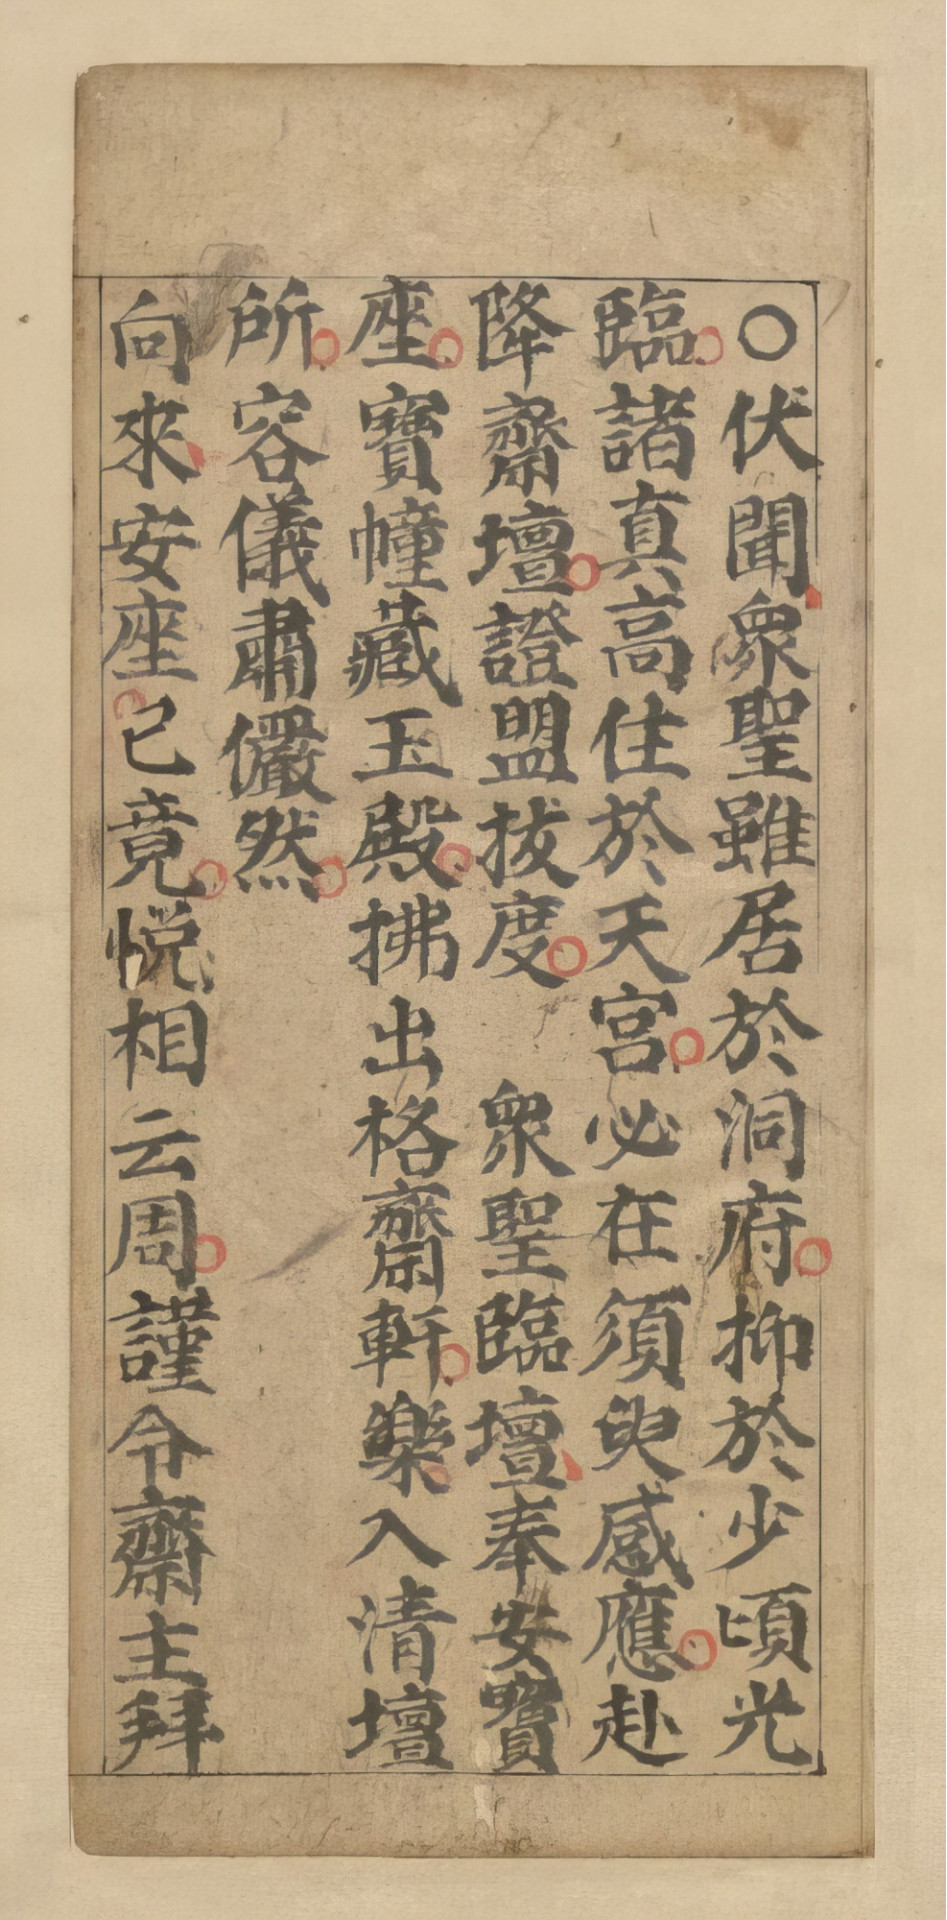 ○伏聞衆聖雖居於洞府抑於少頃光
臨諸真高住於天宮必在須臾感應赴
降齋壇證盟拔度 衆聖臨壇奉安寶
座寶幢藏玉殿拂出格齋軒樂入清壇
所容儀肅儼然
向來安座已竟悅相云周謹令齋主拜